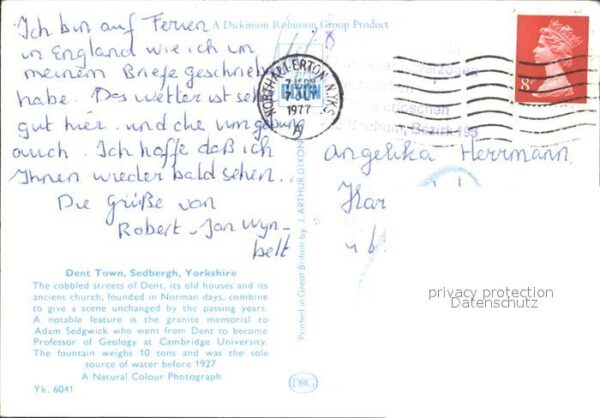 A Dickinson Robinson Group Product
Ich bin auf Ferien
in England wie ich in
meinem Briefe geschrieben
habe. Das wetter ist sehr
gut hier. und die umgebung
auch. Ich hoffe daß ich
Ihnen wieder bald sehen..
Die Grüße von
Robert-Jan Wyn-
belt
Dent Town, Sedbergh, Yorkshire
The cobbled streets of Dent, its old houses and its
ancient church, founded in Norman days, combine
to give a scene unchanged by the passing years.
A notable feature is the granite memorial to
Adam Sedgwick who went from Dent to become
Professor of Geology at Cambridge University.
The fountain weighs 10 tons and was the sole
source of water before 1927
A Natural Colour Photograph
Yk. 6041
Printed in Great Britain by J. ARTHUR DIXON
DRG
NORTHALLERTON N. YKS
1977
A
8P
verzogen
Bochum, Bezirk
Angelika Herrmann
Kar
privacy protection
Datenschutz